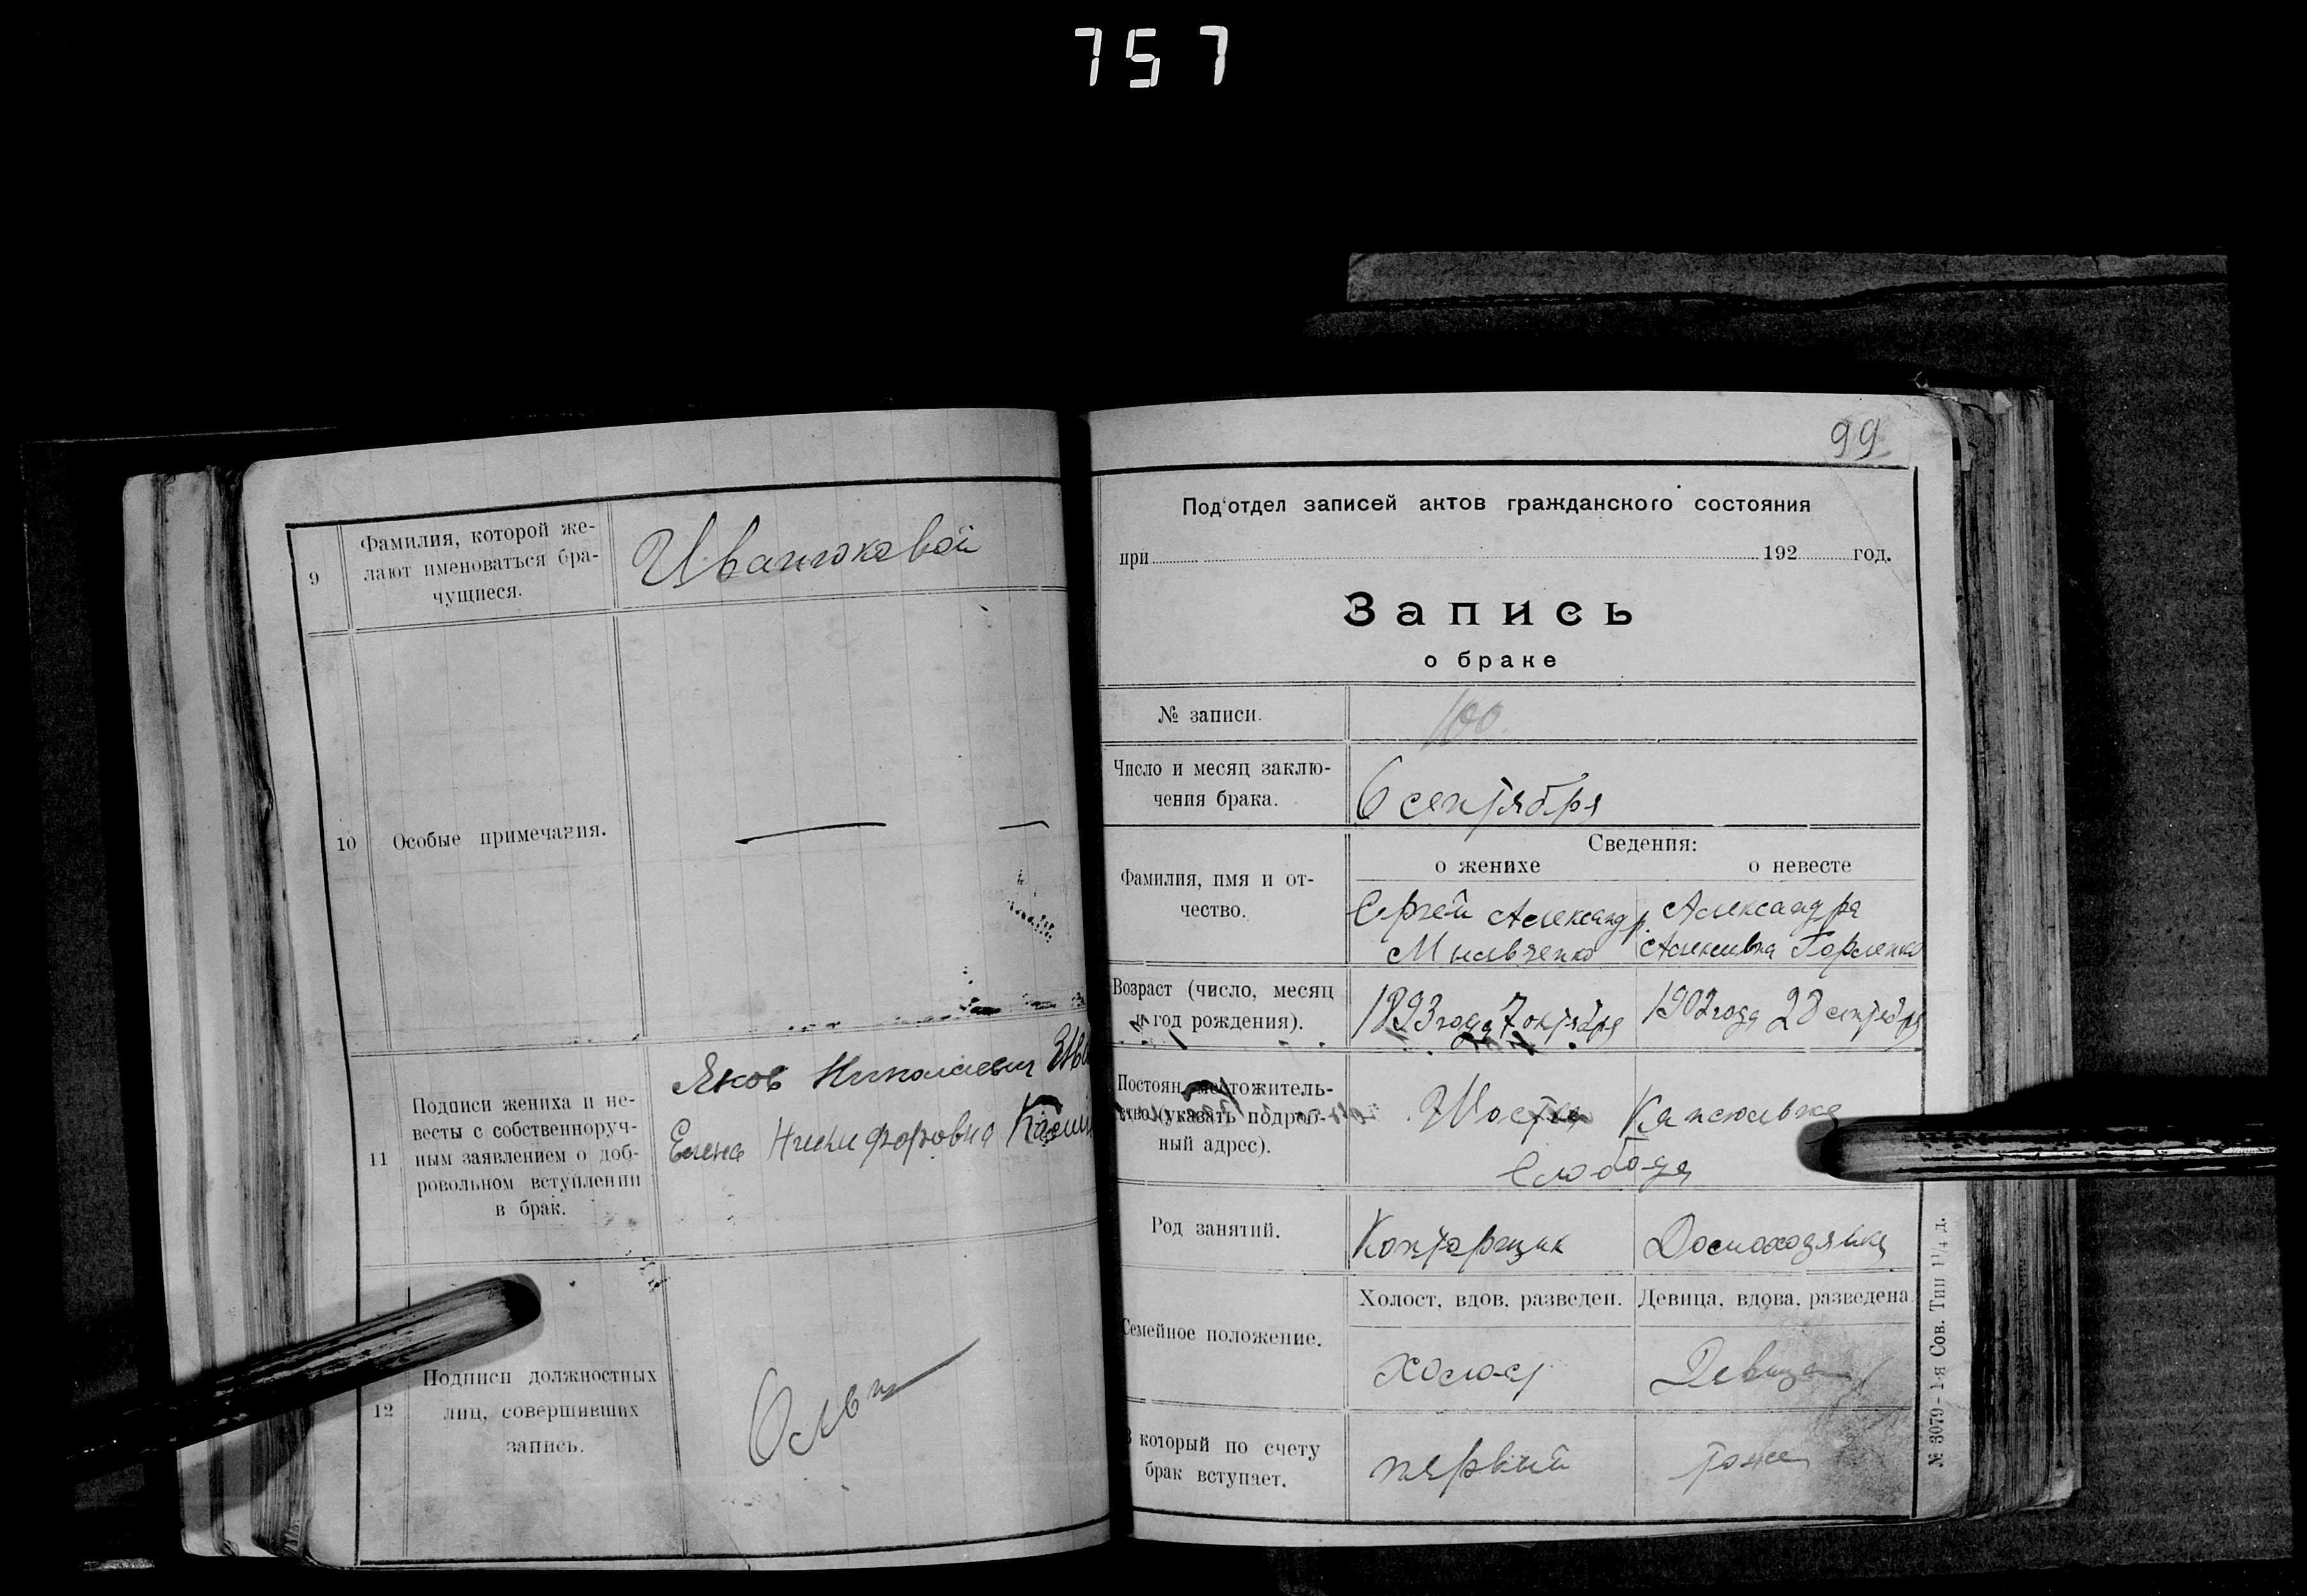 757
9
Фамилия, которой же-
лают именоваться бра-
чущиеся.
Иванюковой
10
Особые примечания.
11
Подписи жениха и не-
весты с собственноруч-
ным заявлением о доб-
ровольном вступлении
в брак.
Яков Николаевич
Елена Никифоровна
12
Подписи должностных
лиц, совершивших
запись.
99
Под'отдел записей актов гражданского состояния
при 192 год.
Запись
о браке
№ записи.
100.
Число и месяц заклю-
чения брака.
6 сентября
Сведения:
о женихе
о невесте
Фамилия, имя и от-
чество.
Сергей Александр.
Мильченко
Александра
Горленко
Возраст (число, месяц
и год рождения).
1893 года 7 октября
1902 года 28 сентября
Постоян. местожитель-
ство (указать подроб-
ный адрес).
Шостка Капсюльная
Слобода
Род занятий.
Конторщик
Домохозяйка
Семейное положение.
Холост, вдов, разведен.
Девица, вдова, разведена.
холост
Девица
В который по счету
брак вступает.
первый
тоже
№ 3079 - 1-я Сов. Тип